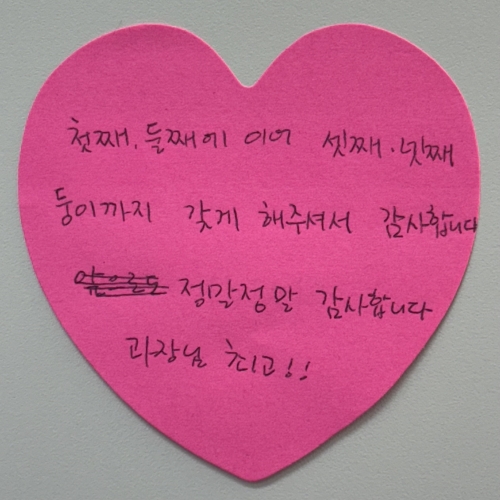 첫째, 둘째에 이어 셋째·넷째
둥이까지 갖게 해주셔서 감사합니다
정말정말 감사합니다
과장님 최고!!